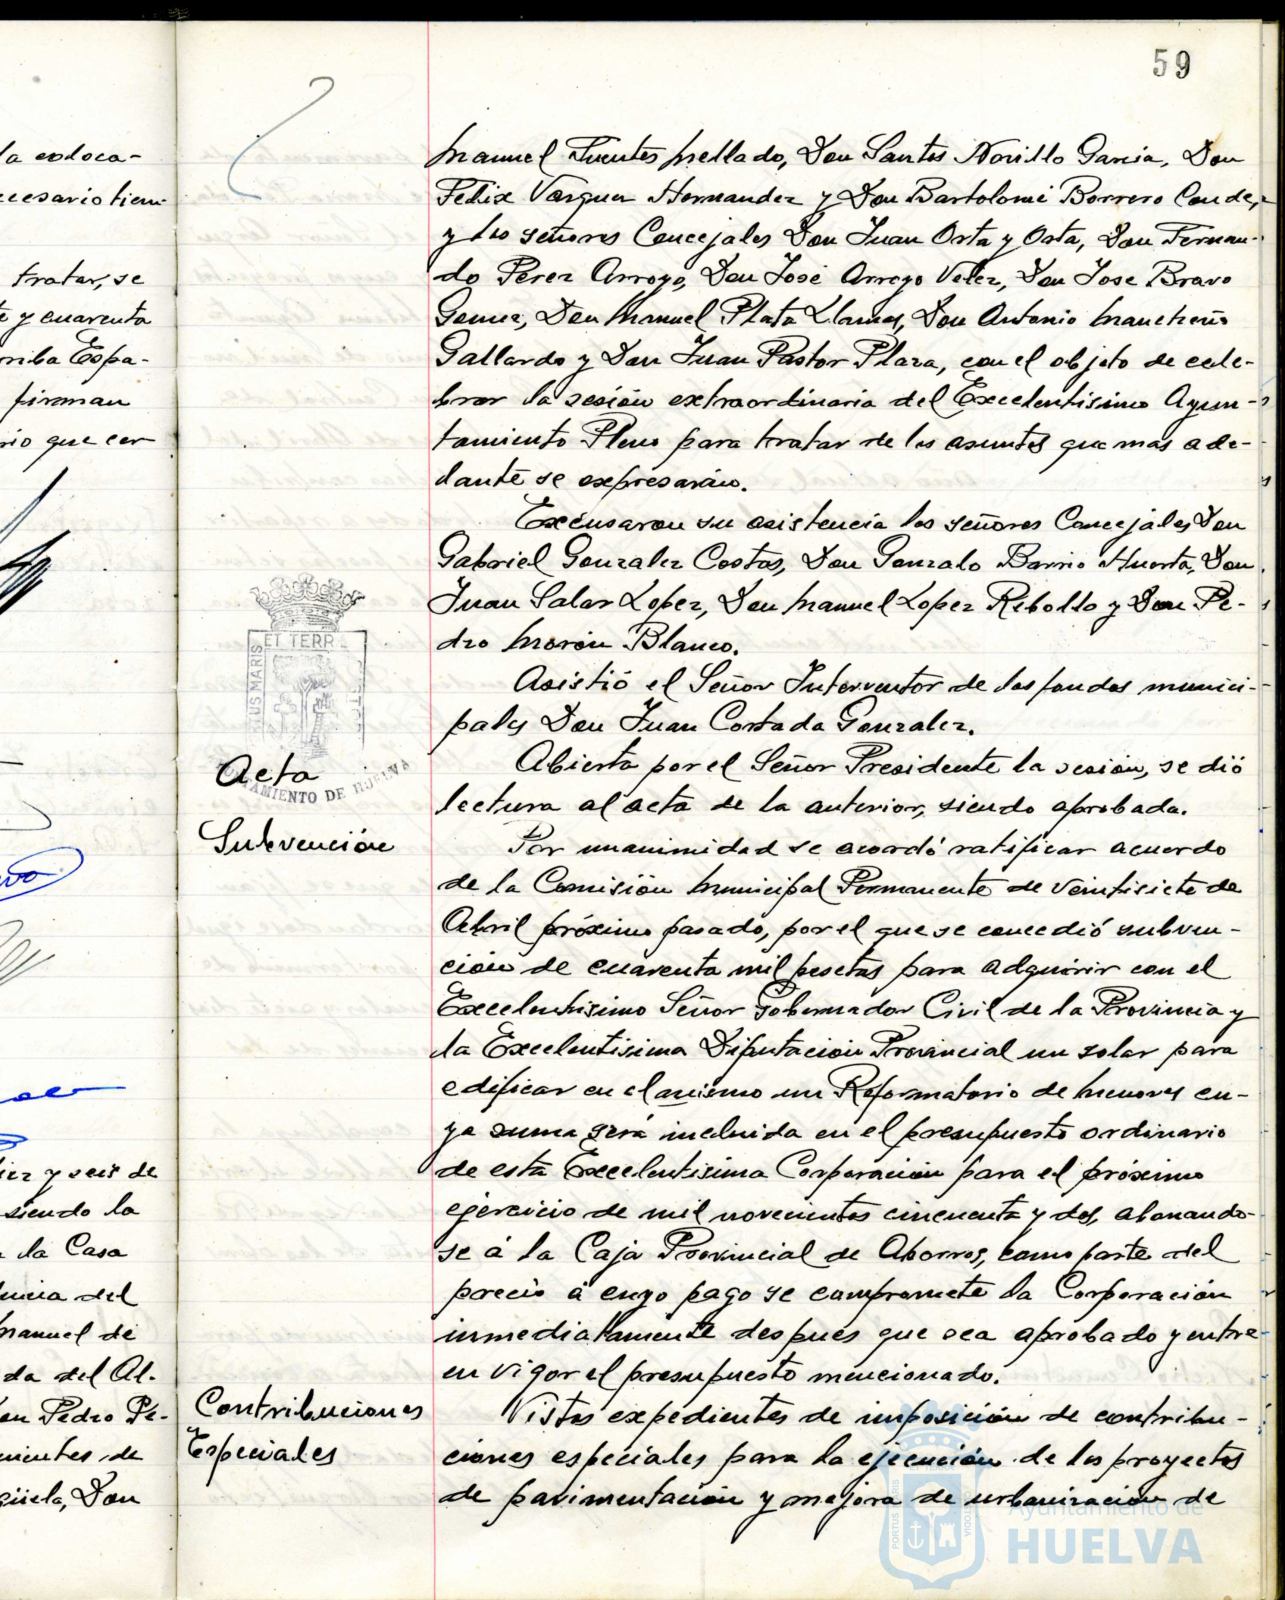 59
la coloca-
cesario tiem-
tratar, se
te y cuarenta
rriba Espa-
firman
rio que cer-
iez y seis de
siendo la
a la Casa
encia del
Manuel de
da del Al-
on Pedro Pé-
nientes de
güela, Don
Manuel Fuentes Mellado, Don Santos Novillo Garcia, Don
Felix Vazquez Hernandez y Don Bartolomé Borrero Conde,
y los señores Concejales Don Juan Orta y Orta, Don Fernan-
do Pérez Arroyo, Don José Arroyo Velez, Don Jose Bravo
Gomez, Don Manuel Plata Llamas, Don Antonio Mancheño
Gallardo y Don Juan Pastor Plaza, con el objeto de cele-
brar la sesión extraordinaria del Excelentisimo Ayun-
tamiento Pleno para tratar de los asuntos que mas ade-
lante se expresarán.
Excusaron su asistencia los señores Concejales Don
Gabriel Gonzalez Costas, Don Gonzalo Barrio Huerta, Don
Juan Salas Lopez, Don Manuel Lopez Rebollo y Don Pe-
dro Morón Blanco.
Asistió el Señor Interventor de los fondos munici-
pales Don Juan Cortada Gonzalez.
ET TERR
US MARIS
AMIENTO DE HUELVA
Acta
Abierta por el Señor Presidente la sesión, se dió
lectura al acta de la anterior, siendo aprobada.
Subvención
Por unanimidad se acordó ratificar acuerdo
de la Comisión Municipal Permanente de veintisiete de
Abril próximo pasado, por el que se concedió subven-
ción de cuarenta mil pesetas para adquirir con el
Excelentisimo Señor Gobernador Civil de la Provincia y
la Excelentisima Diputación Provincial un solar para
edificar en el mismo un Reformatorio de Menores cu-
ya suma será incluida en el presupuesto ordinario
de esta Excelentisima Corporación para el próximo
ejercicio de mil novecientos cincuenta y dos, abonando-
se á la Caja Provincial de Ahorros, como parte del
precio á cuyo pago se compromete la Corporación
inmediatamente despues que sea aprobado y entre
en vigor el presupuesto mencionado.
Contribuciones
Especiales
Vistos expedientes de imposición de contribu-
ciones especiales para la ejecución de los proyectos
de pavimentación y mejora de urbanización de
PORTUS MARIS
CUSTODIA
Ayuntamiento de
HUELVA